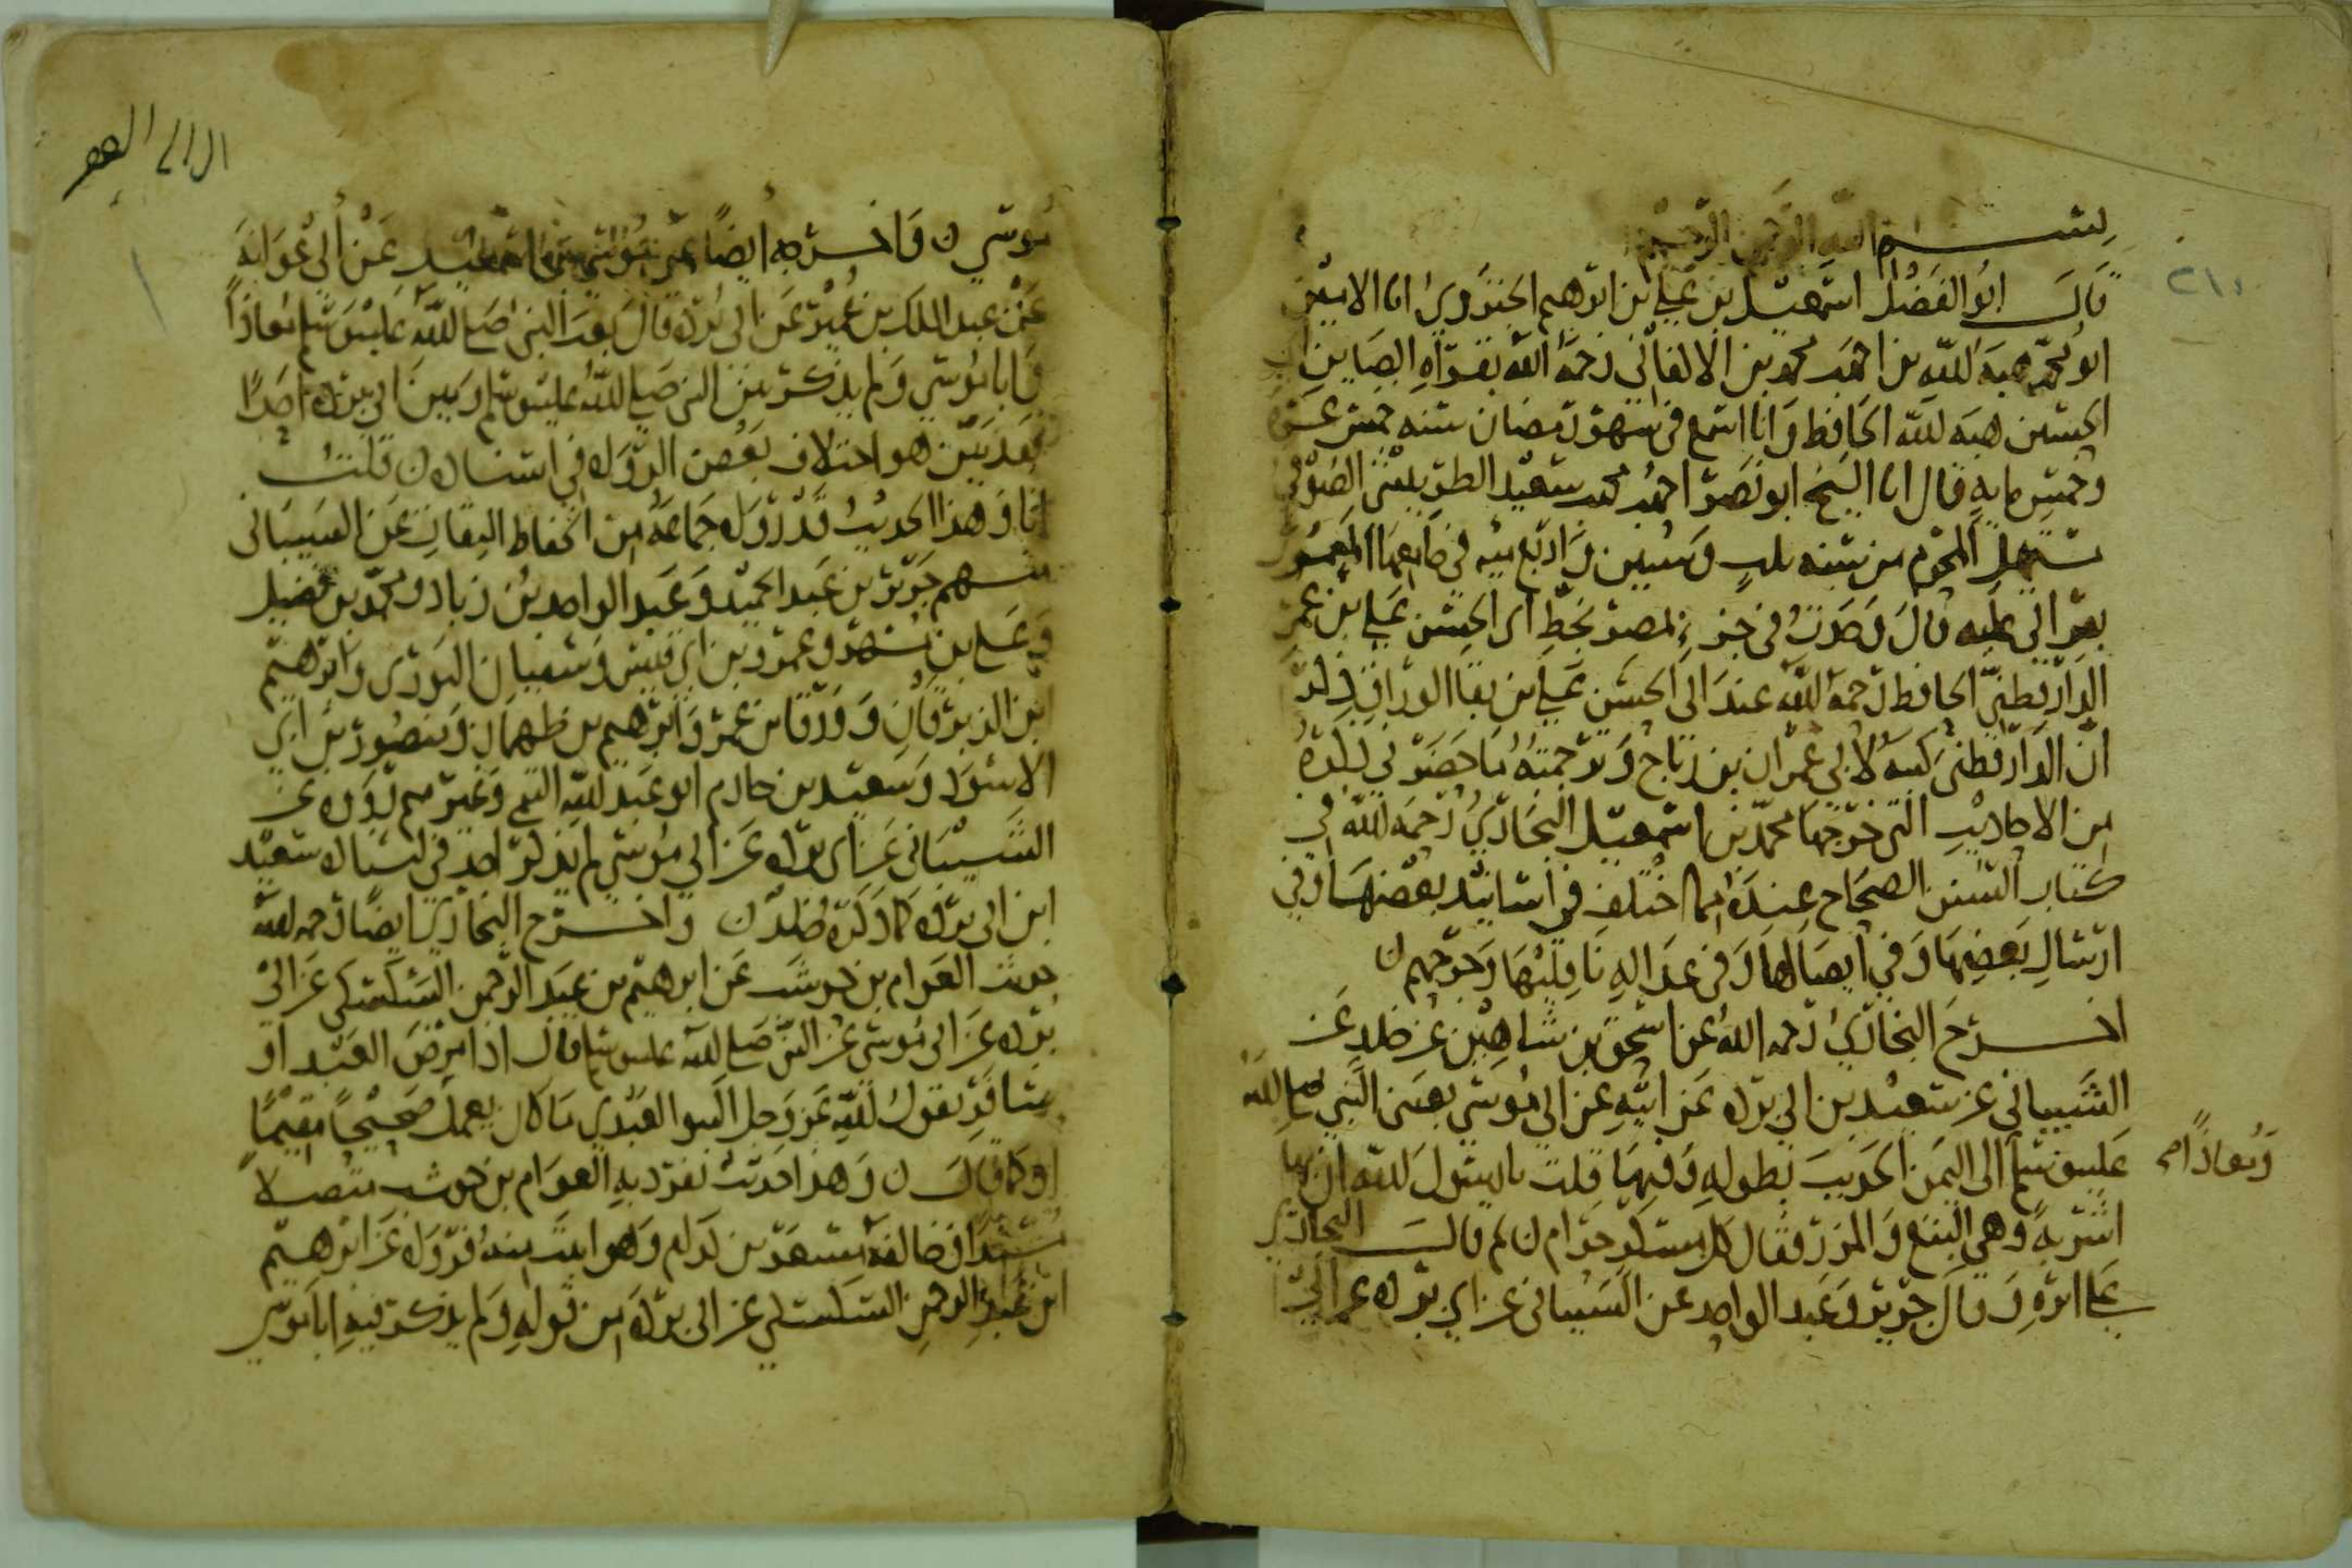 ٢١٠
بسم الله الرحمن الرحيم
قال ابو الفضل اسمعيل بن علي بن ابرهيم الجنزوي انا الامين
ابو محمد هبة الله بن احمد بن محمد بن الاكفاني رحمه الله بقراه الصاين
الحسين هبه الله الحافظ وانا اسمع في شهر رمضان سنه خمس عشره
وخمس مايه قال انا الشيخ ابو نصر احمد بن محمد بن سعيد الطريثيثي الصوفي
مستهل المحرم من سنه ثلث وستين واربع ميه في جامعها المعمور
بقراتي عليه قال وجدت في جزء بمصر بخط ابي الحسن علي بن عمر
الدارقطني الحافظ رحمه الله عند ابي الحسن علي بن بقا الوراق ذكر
ان الدارقطني كتبه لابي عمران بن رباح وترجمته ما حضرني ذكره
من الاحاديث التي خرجها محمد بن اسمعيل البخاري رحمه الله في
كتاب السنن الصحاح عنده مما اختلف في اسانيد بعضها وفي
ارسال بعضها وفي ايصالها وفي عداله ناقليها وجرحهم ن
اخرج البخاري رحمه الله عن اسحق بن شاهين عن خلد عن
الشيباني عن سعيد بن ابي برده عن ابيه عن ابي موسى بعثني النبي صلى الله
عليه وسلم الى اليمن الحديث بطوله وفيها قلت يا رسول الله ان بها
ومعاذا صح
اشربة وهي البتع والمزر فقال كل مسكر حرام ن ثم قال البخاري
على اثره وقال جرير وعبد الواحد عن الشيباني عن ابي برده عن ابي
موسى ن واخرجه ايضا عن موسى بن اسمعيل عن ابي عوانة
عن عبد الملك بن عمير عن ابي برده قال بعث النبي صلى الله عليه وسلم معاذا
وابا موسى ولم يذكر بين النبي صلى الله عليه وسلم وبين ابي برده احدا
فقد بين هو اختلاف بعض الرواه في اسناده ن قلت
انا وهذا الحديث قد رواه جماعة من الحفاظ الثقات عن الشيباني
منهم جرير بن عبد الحميد وعبد الواحد بن زياد ومحمد بن فضيل
وعلي بن مسهر وعمرو بن ابي قيس وسفيان الثوري وابرهيم
بن الزبرقان وورقا بن عمر وابرهيم بن طهمان ومنصور بن ابي
الاسود وسعيد بن حازم ابو عبد الله التيمي وغيرهم رووه عن
الشيباني عن ابي برده عن ابي موسى لم يذكر احد في اسناده سعيد
ابن ابي برده كما ذكره خلد ن واخرج البخاري ايضا رحمه الله
حديث العوام بن حوشب عن ابرهيم بن عبد الرحمن السكسكي عن ابي
برده عن ابي موسى عن النبي صلى الله عليه وسلم قال اذا مرض العبد او
سافر يقول الله عز وجل اكتبوا لعبدي ما كان يعمل صحيحا مقيما
او كما قال ن وهذا حديث تفرد به العوام بن حوشب متصلا
مسندا وخالفه مسعر بن كدام وهو اثبت منه فرواه عن ابرهيم
ابن عبد الرحمن السكسكي عن ابي برده من قوله ولم يذكر فيه ابا موسى